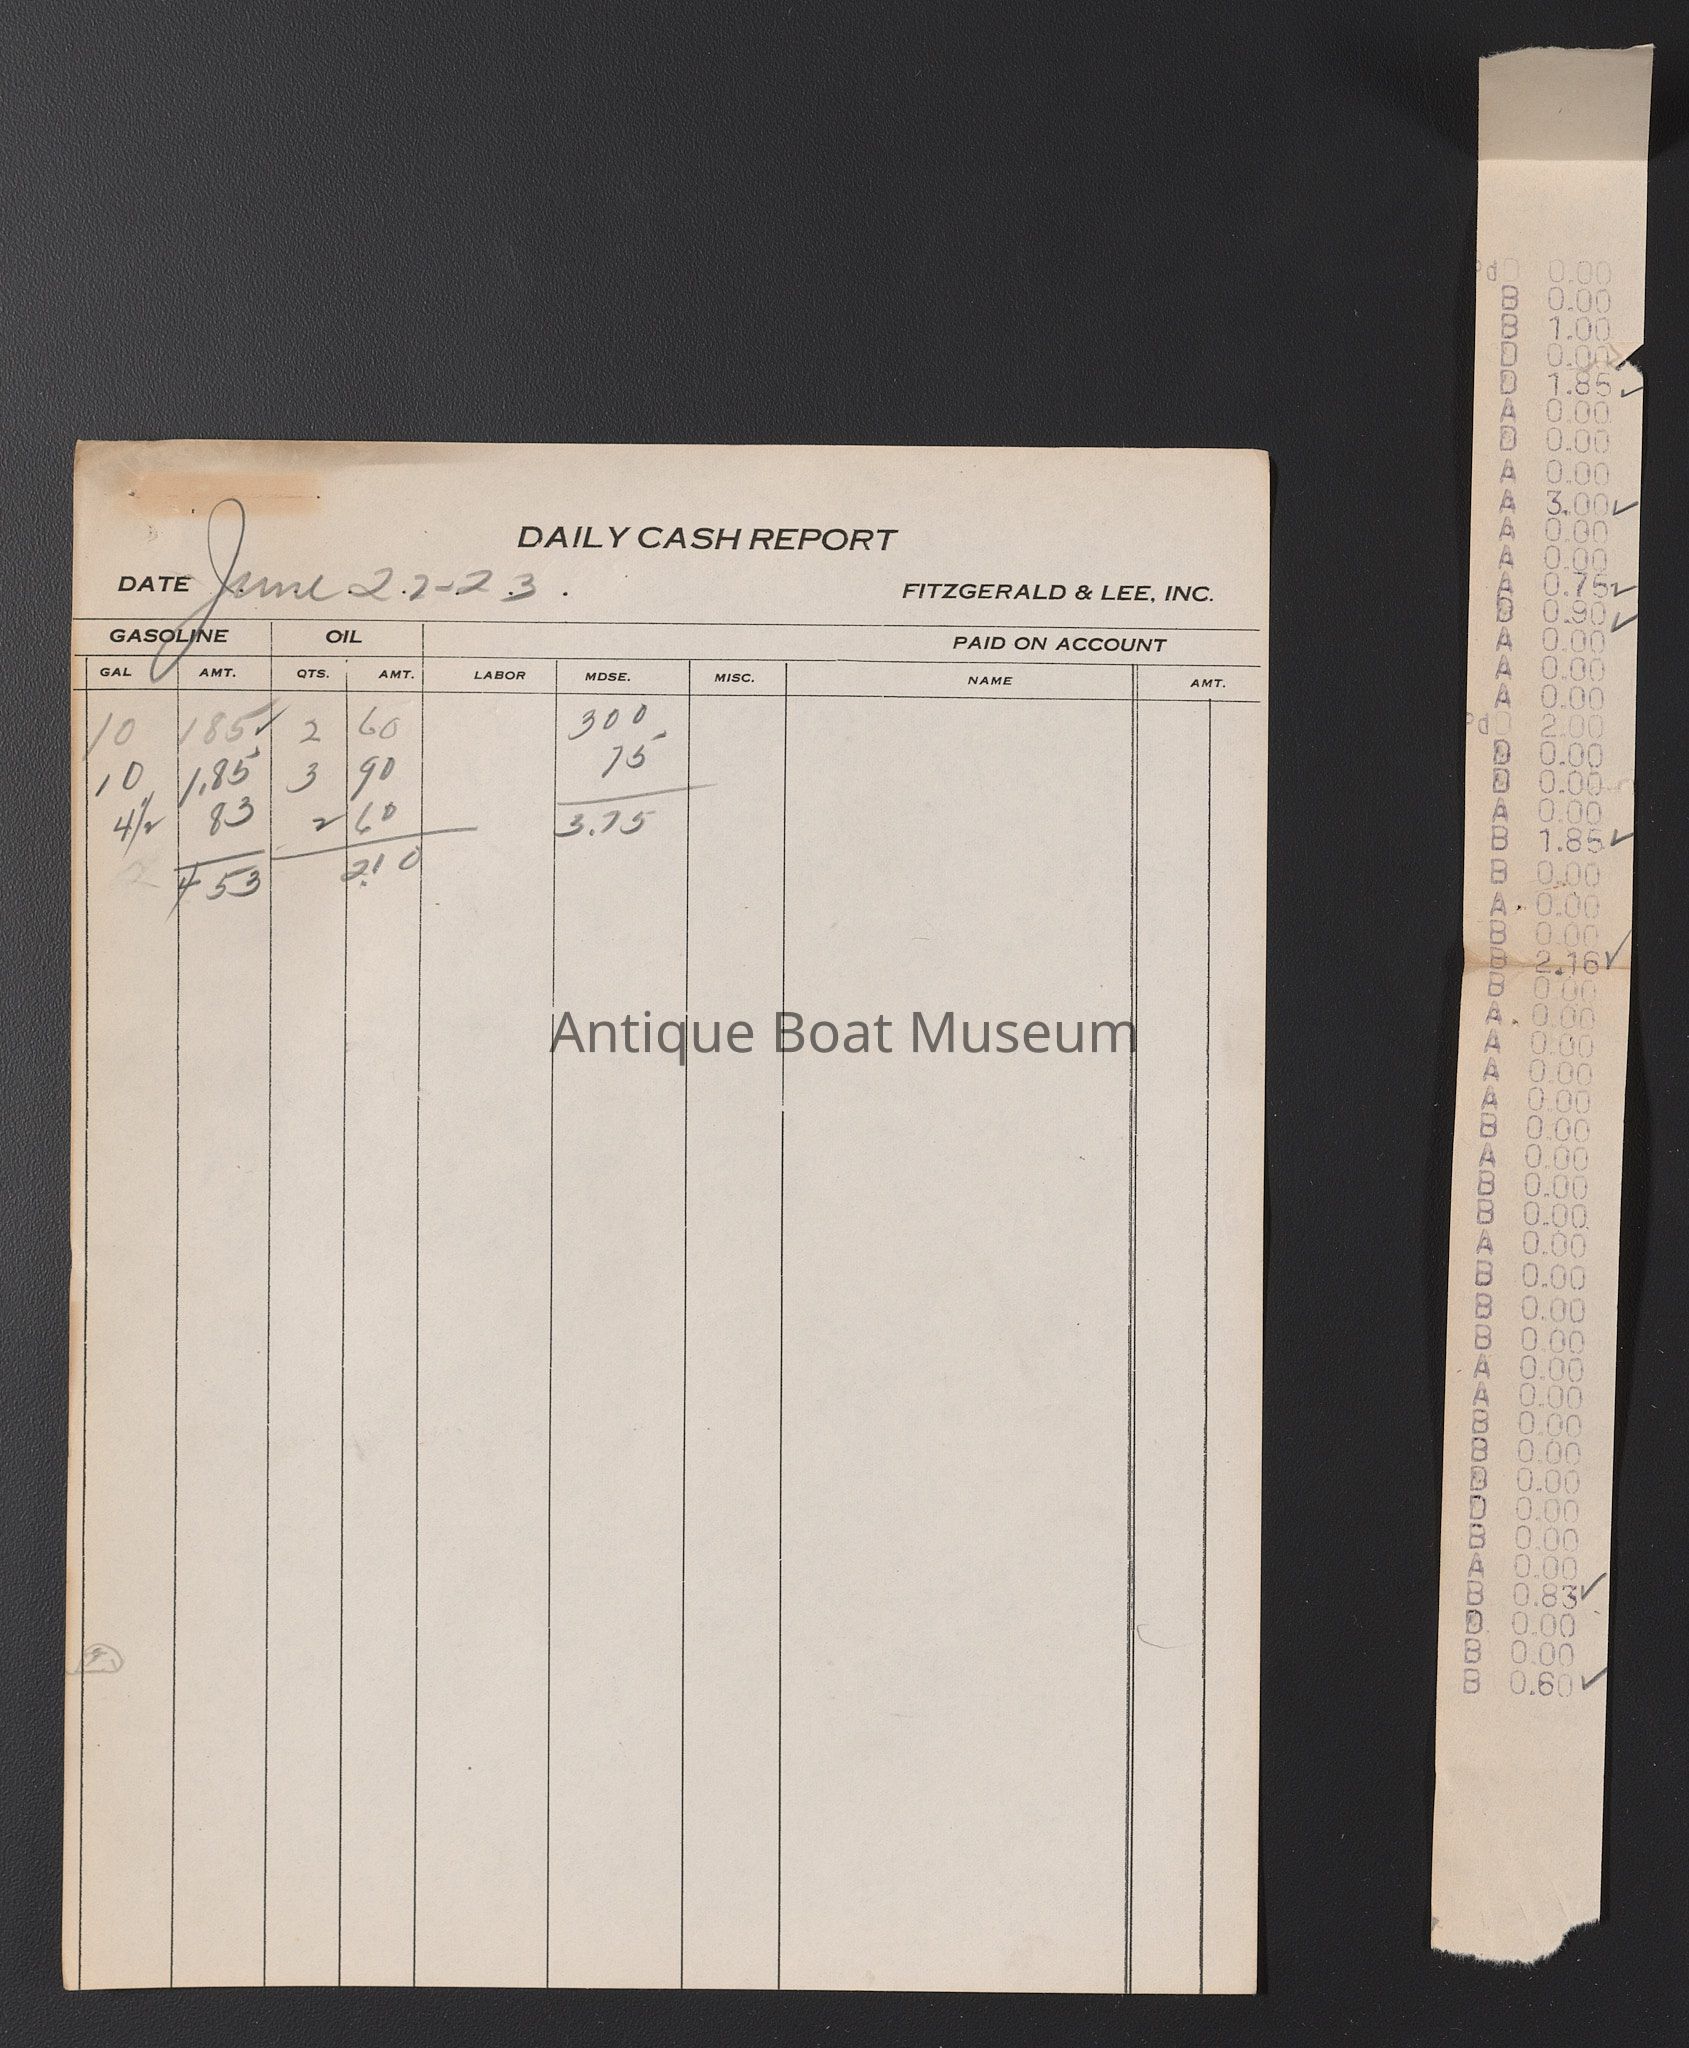 DAILY CASH REPORT
DATE June 22-23.
FITZGERALD & LEE, INC.
GASOLINE OIL PAID ON ACCOUNT
GAL AMT. QTS. AMT. LABOR MDSE. MISC. NAME AMT.
10 185✓ 2 60 300
10 1.85 3 90 75
4½ 83 2 60 3.75
2 4 53 2.10
Antique Boat Museum
Pd 0.00
B 0.00
B 1.00
D 0.00
D 1.85 ✓
A 0.00
D 0.00
A 0.00
A 3.00 ✓
A 0.00
A 0.00
A 0.75 ✓
D 0.90 ✓
A 0.00
A 0.00
A 0.00
Pd 2.00
D 0.00
D 0.00
A 0.00
B 1.85 ✓
B 0.00
A 0.00
B 0.00
B 2.16 ✓
B 0.00
A 0.00
A 0.00
A 0.00
A 0.00
B 0.00
A 0.00
B 0.00
B 0.00
A 0.00
B 0.00
B 0.00
B 0.00
A 0.00
A 0.00
B 0.00
B 0.00
D 0.00
D 0.00
B 0.00
A 0.00
B 0.83 ✓
D 0.00
B 0.00
B 0.60 ✓